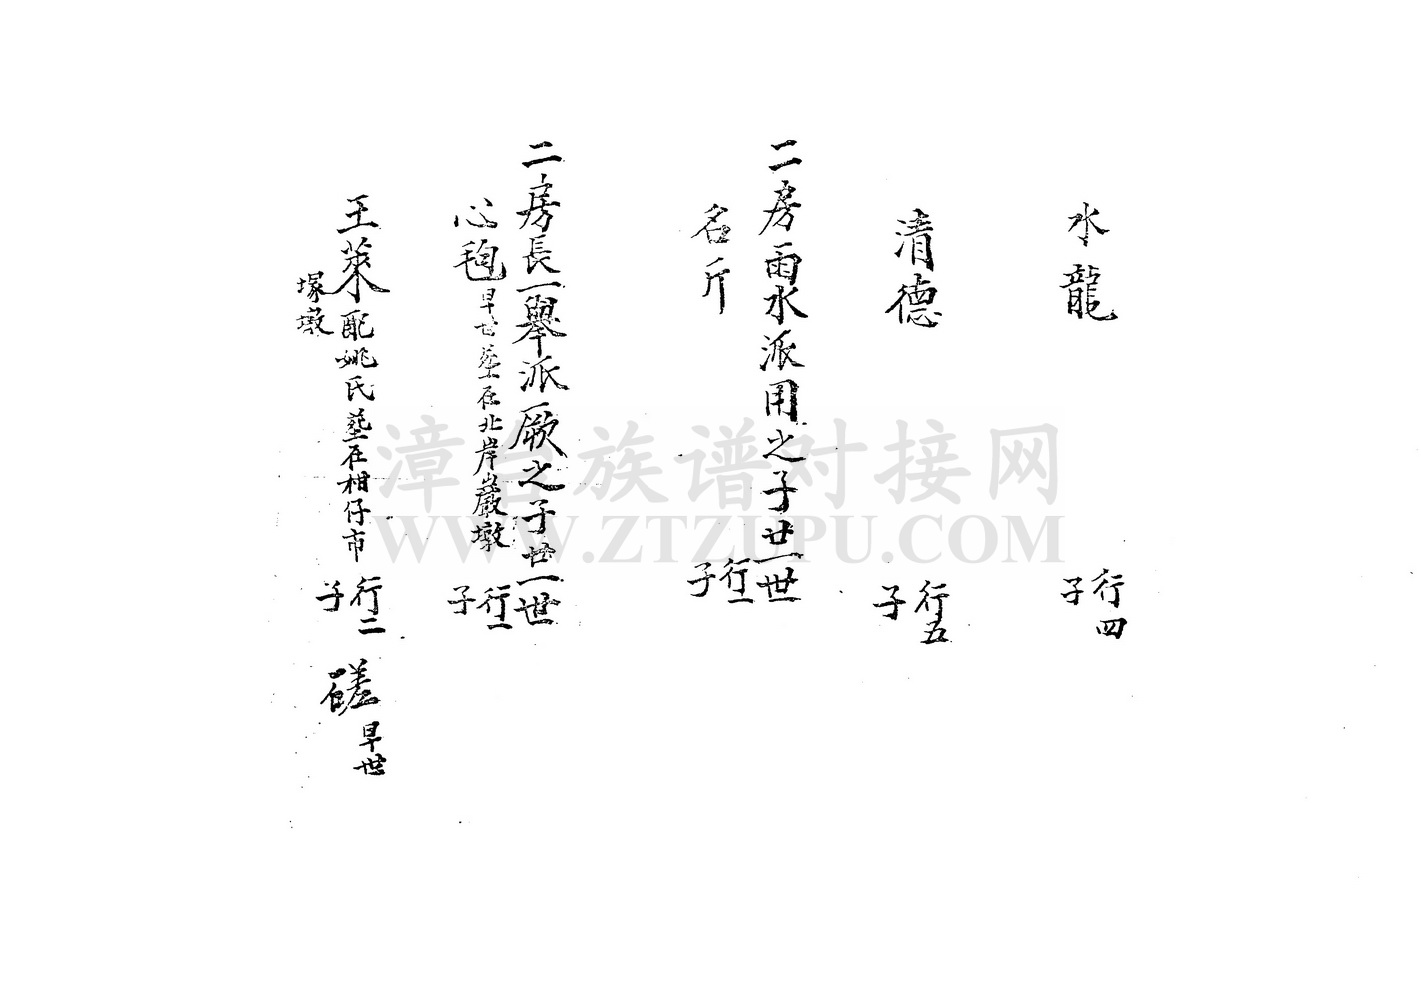 水龍 行四 子
清德 行五 子
二房雨水派用之子廿一世
名斤 行一 子
二房長一舉派厥之子廿一世
心 早世葬在北岸巖墩 行一 子
王萊 配姚氏葬在柑仔市
塚墩 行二 子 磋 早世
漳台族谱对接网
WWW.ZTZUPU.COM